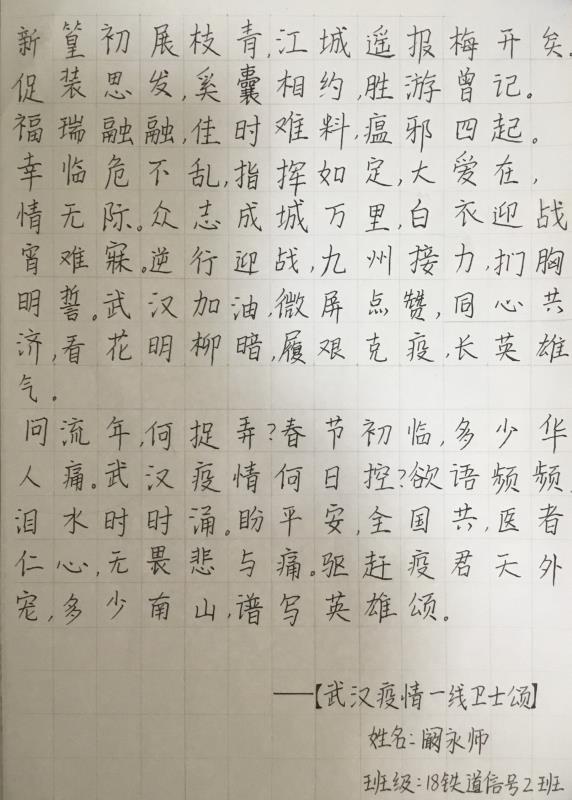 新篁初展枝青,江城遥报梅开矣。
促装思发,奚囊相约,胜游曾记。
福瑞融融,佳时难料,瘟邪四起。
幸临危不乱,指挥如定,大爱在,
情无际。众志成城万里,白衣迎战
宵难寐。逆行迎战,九州接力,扪胸
明誓。武汉加油,微屏点赞,同心共
济,看花明柳暗,履艰克疫,长英雄
气。
问流年,何捉弄?春节初临,多少华
人痛。武汉疫情何日控?欲语频频
泪水时时涌。盼平安,全国共,医者
仁心,无畏悲与痛。驱赶疫君天外
宠,多少南山,谱写英雄颂。
——【武汉疫情一线卫士颂】
姓名:阚永师
班级:18铁道信号2班